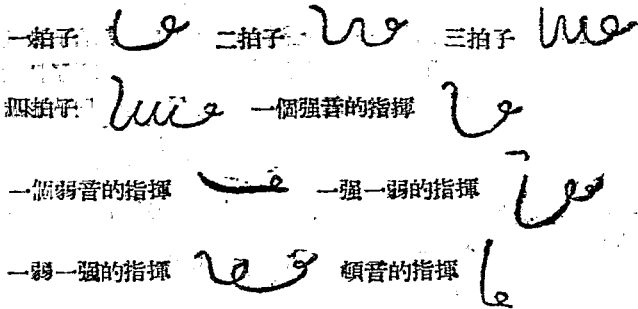 一拍子 二拍子 三拍子
四拍子 一個强音的指揮
一個弱音的指揮 一强一弱的指揮
一弱一强的指揮 頓音的指揮